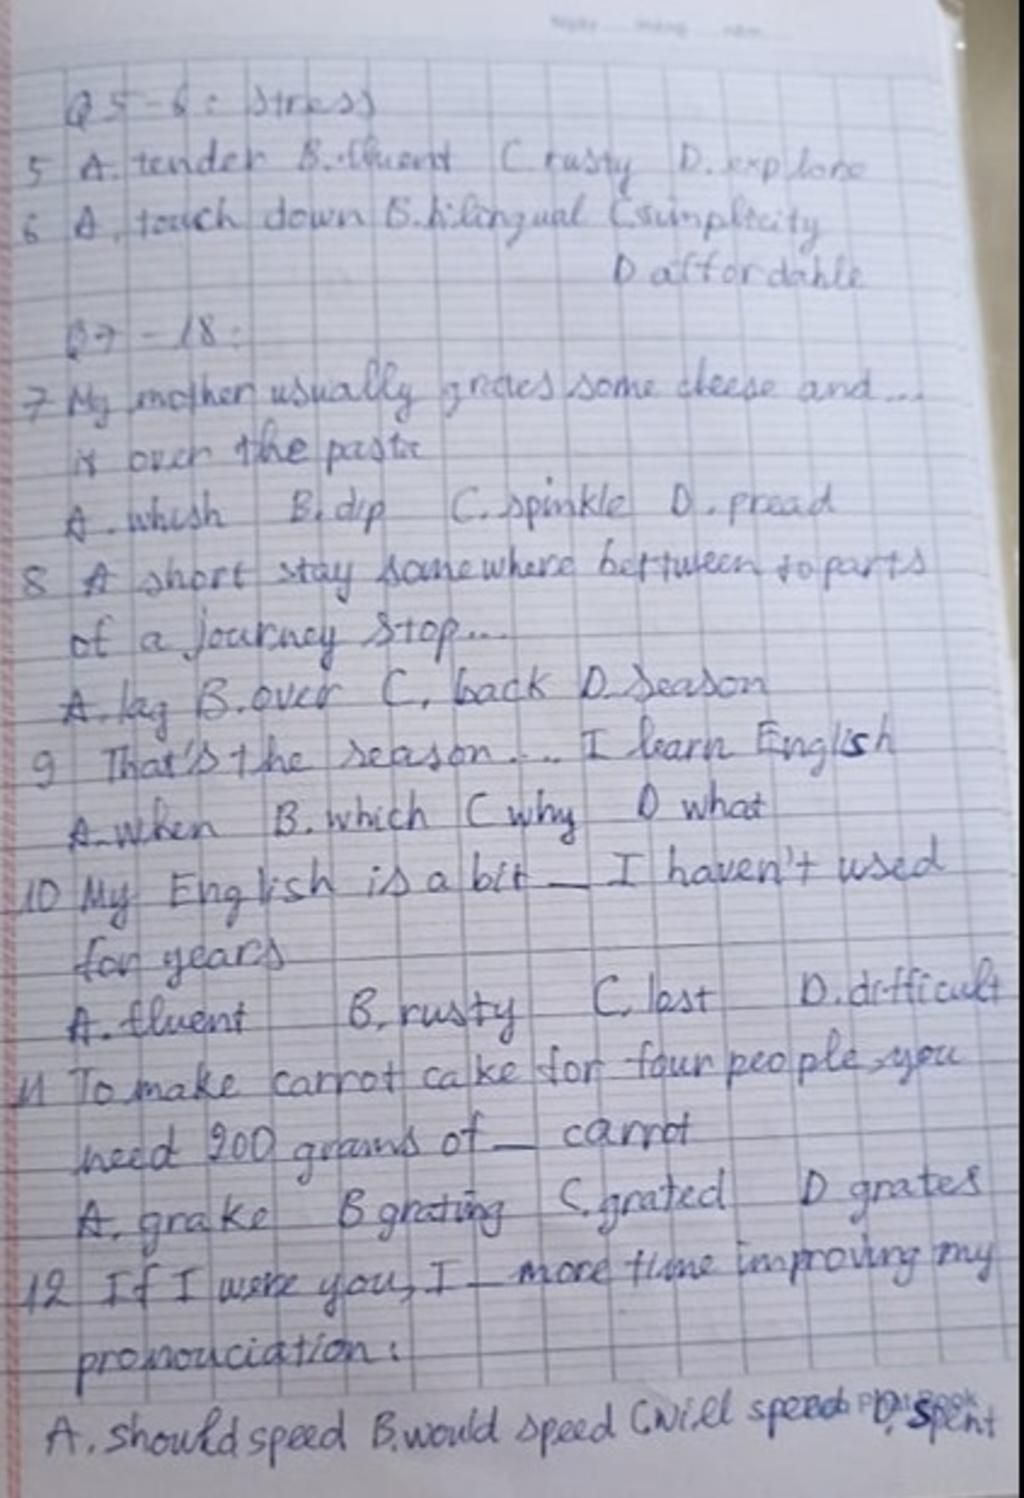 Ngày tháng năm
Q 5 - 6 : stress
5 A. tender B. fluent C rusty D. explore
6 A. touch down B. bilingual C simplicity
D affordable
Q7 - 18 :
7 My mother usually grates some cheese and ...
is over the pasta
A. whish B. dip C. spinkle D. pread
8 A short stay somewhere bettween to parts
of a journey stop...
A. lag B. over C. back D. season
9 That's the reason .... I learn English
A. when B. which C why D what
10 My English is a bit _ I haven't used
for years
A. fluent B. rusty C. lost D. difficult
11 To make carrot cake for four people, you
need 200 grams of _ carrot
A. grake B grating C. grated D grates
12 If I were you, I _ more time improving my
pronouciation :
A. should speed B. would speed C will speed D. spent